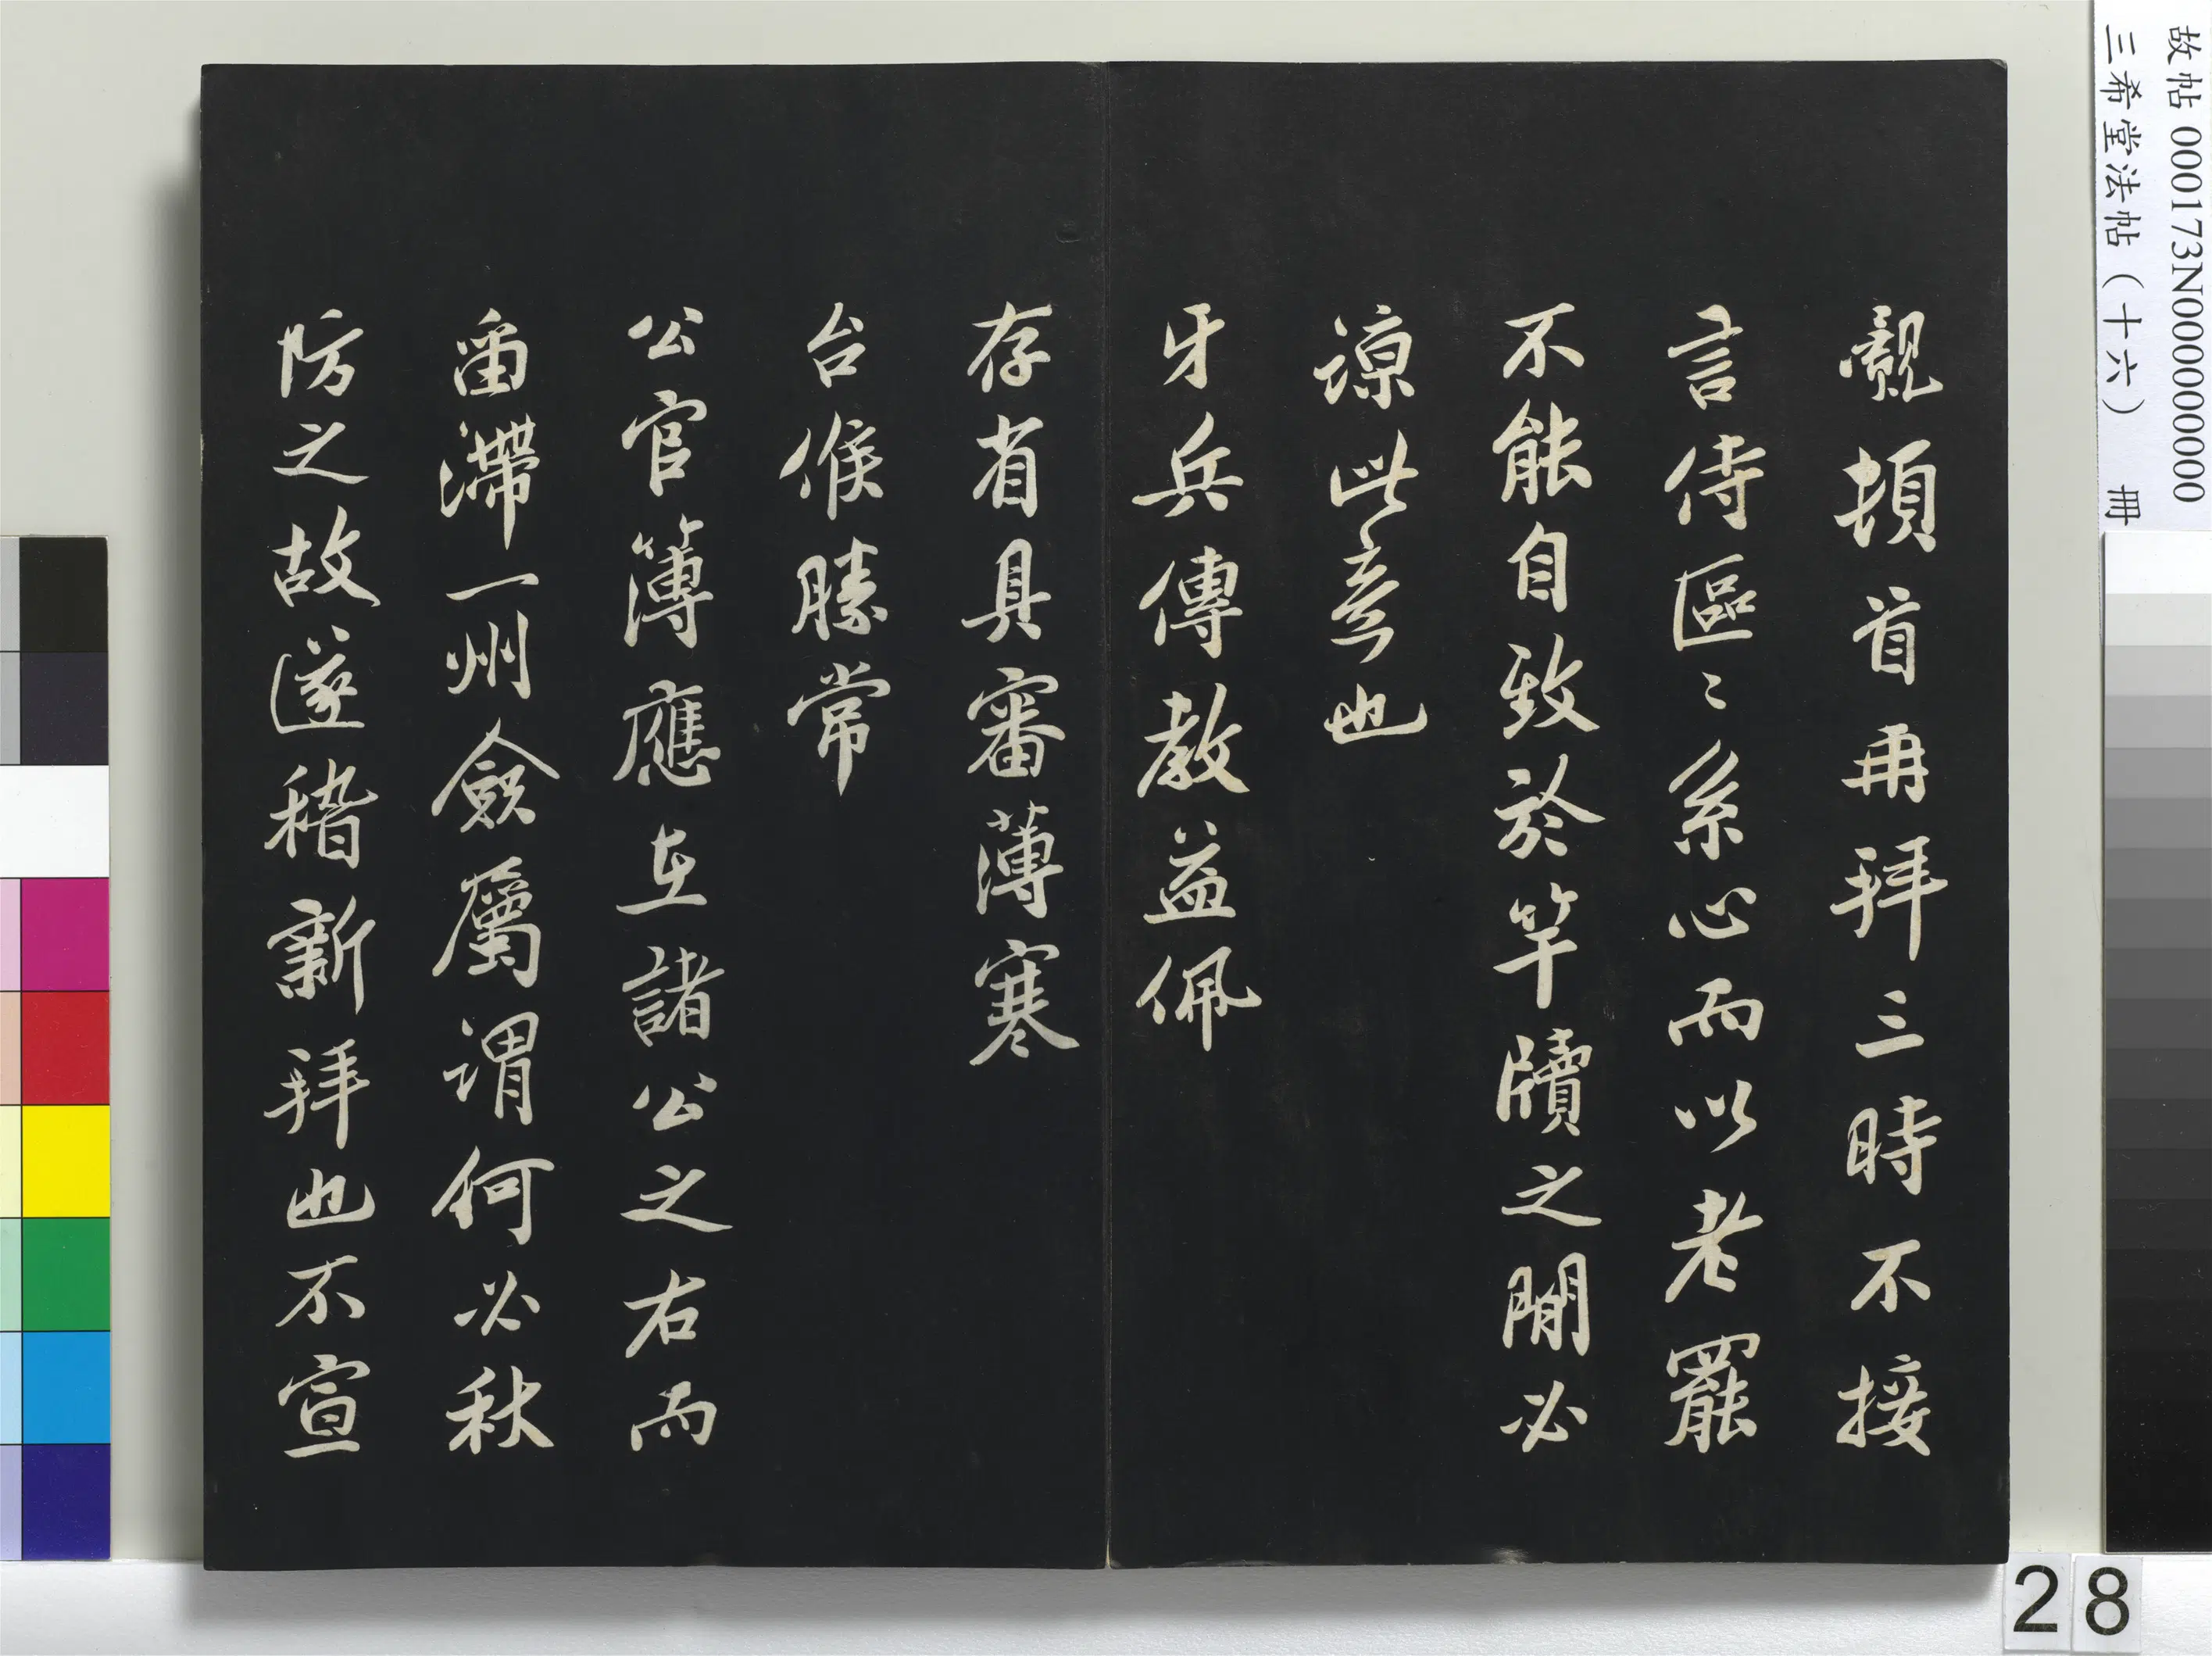 覿頓首再拜三時不接
言侍區〻系心而以老罷
不能自致於竿牘之間必
諒此意也
牙兵傳教益佩
存省具審薄寒
台候勝常
公官簿應在諸公之右而
畱滯一州僉屬謂何必秋
防之故遂稽新拜也不宣
故帖 000173N000000000
三希堂法帖（十六） 冊
28